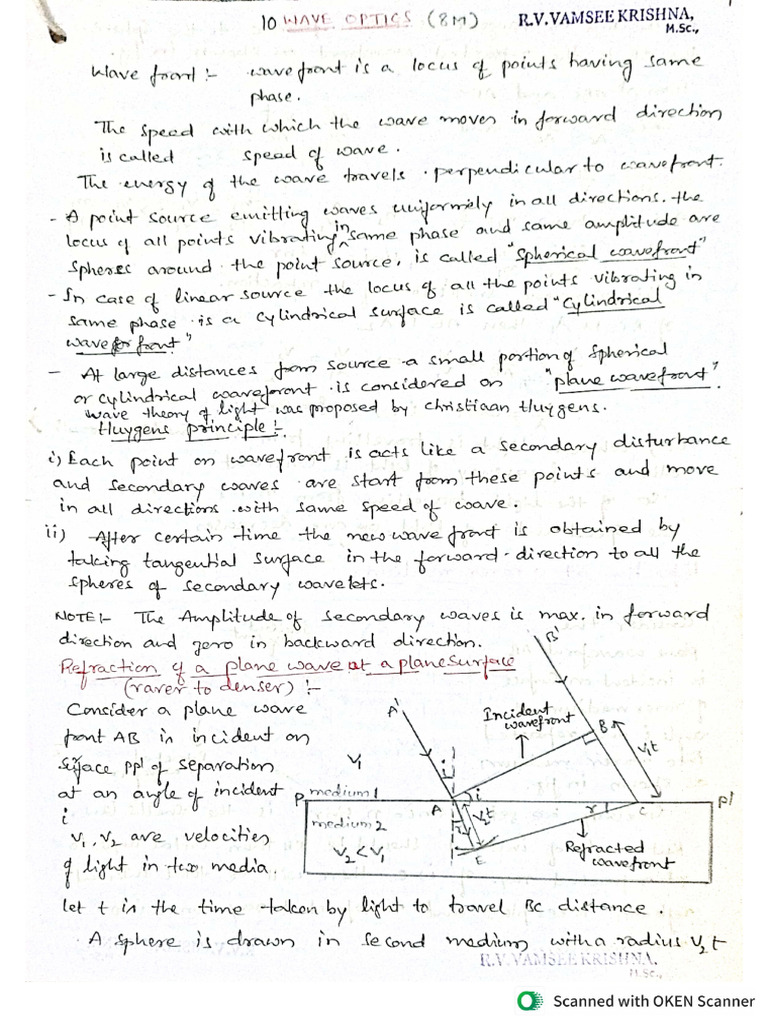 10 WAVE OPTICS (8M)
R.V.VAMSEE KRISHNA,
M.Sc.,
Wave front :- wavefront is a locus of points having same
phase.
The speed with which the wave moves in forward direction
is called speed of wave.
The energy of the wave travels perpendicular to wavefront.
- A point source emitting waves uniformely in all directions. the
locus of all points vibrating in same phase and same amplitude are
spheres around the point source, is called "Spherical wavefront"
- In case of linear source the locus of all the points vibrating in
same phase is a cylindrical surface is called "Cylindrical
wave for front"
- At large distances from source a small portion of spherical
or cylindrical wavefront is considered on "plane wavefront".
wave theory of light was proposed by christiaan Huygens.
Huygens principle :-
i) Each point on wavefront is acts like a secondary disturbance
and secondary waves are start from these points and move
in all directions with same speed of wave.
ii) After certain time the new wave front is obtained by
taking tangential surface in the forward direction to all the
spheres of secondary wavelets.
NOTE:- The Amplitude of secondary waves is max. in forward
direction and zero in backward direction.
Refraction of a plane wave at a plane surface
(rarer to denser) :-
Consider a plane wave
front AB is incident on
surface pp' of separation
at an angle of incident
i
V1, V2 are velocities
of light in two media.
B'
A'
Incident
wavefront
B
V1
V1t
i
i
P
medium 1
A
r
C
P'
medium 2
V2t
r
V2 < V1
E
Refracted
wavefront
let t is the time taken by light to travel BC distance.
A sphere is drawn in second medium with a radius V2t
R.V.VAMSEE KRISHNA,
M.Sc.,
Scanned with OKEN Scanner